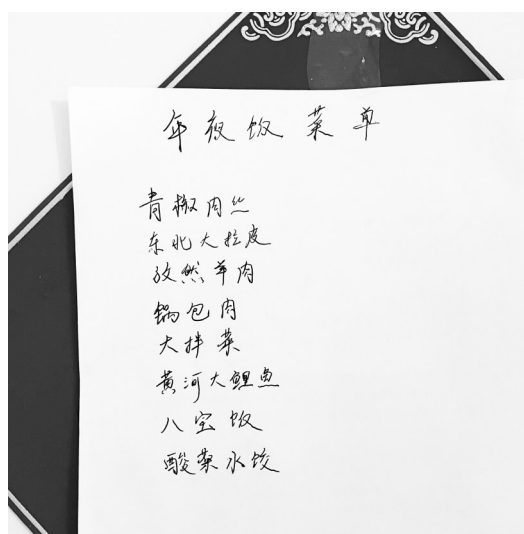 年夜饭菜单
青椒肉丝
东北大拉皮
孜然羊肉
锅包肉
大拌菜
黄河大鲤鱼
八宝饭
酸菜水饺